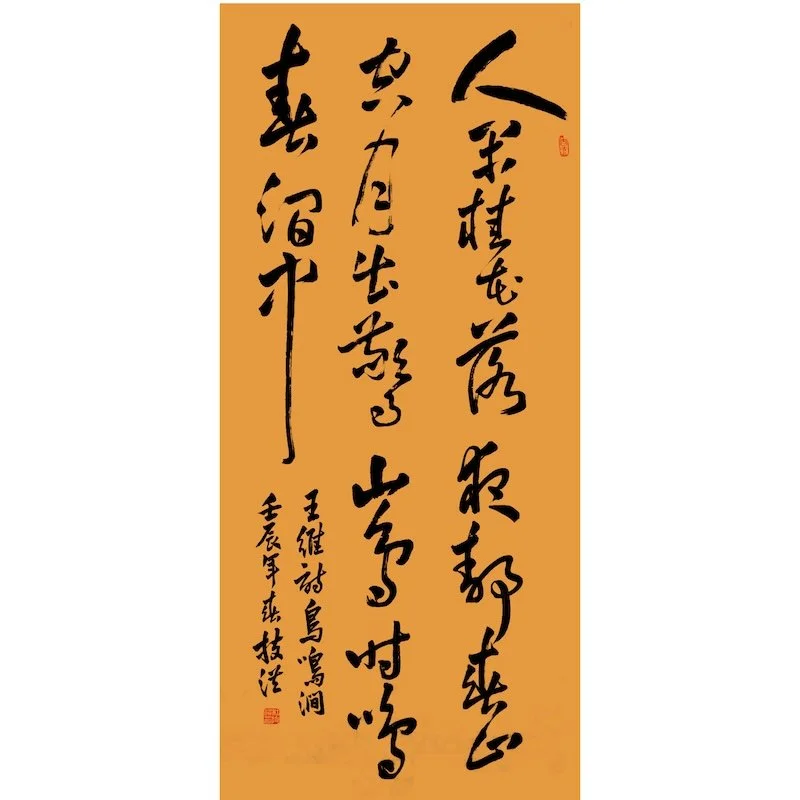 人闲桂花落夜静春山
空月出惊山鸟时鸣
春涧中
王维诗鸟鸣涧
壬辰年春技洪